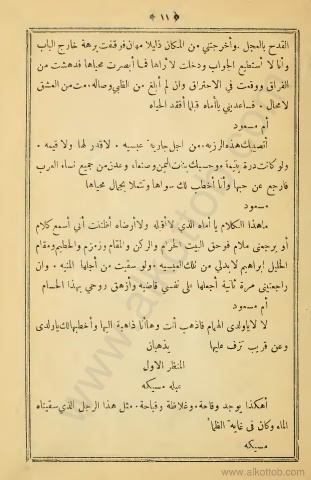 ﴿ ١١ ﴾
القدح بالعجل . وأخرجتني من المكان ذليلا مهان فوقفت برهة خارج الباب
وأنا لا أستطيع الجواب ودخلت لأراها فما أبصرت محياها فدهشت من
الفراق ووقعت في الاحتراق وان لم أبلغ من الظبي وصاله . . مت من العشق
لا محال . فساعديني يا أماه قبل أفقد الحياه
أم مسعود
أتصيبك هذه الرزيه . . من أجل جارية عبسيه . لا قدر لها ولا قيمه .
ولو كانت درة يتيمة . وحسبك بنت اليمن وصنعاء وعدن من جميع نساء العرب
فارجع عن حبها وأنا أخطب لك سواها وتتملا بجمال محياها
مسعود
ما هذا الكلام يا أماه الذي لا أقبله ولا أرضاه أظننت أني أسمع كلام
أو يرجعني ملام فوحق البيت الحرام والركن والمقام وزمزم والحطيم ومقام
الخليل ابراهيم لا بد لي من تلك العبسيه . ولو سقيت من أجلها المنيه . وان
راجعتيني مرة ثانية أجعلها على نفسي قاضيه وازهق روحي بهذا الحسام
أم مسعود
لا لا يا ولدي الهمام فاذهب أنت وها أنا ذاهبة اليها وأخطبها لك يا ولدي
وعن قريب تزف عليها يذهبان
المنظر الاول
عبله مسيكه
أهكذا يوجد وقاحة . وغلاظة وقباحة . . مثل هذا الرجل الذي سقيناه
الماء وكان في غاية الظما
مسيكه
www.alkottob.com
www.alkottob.com